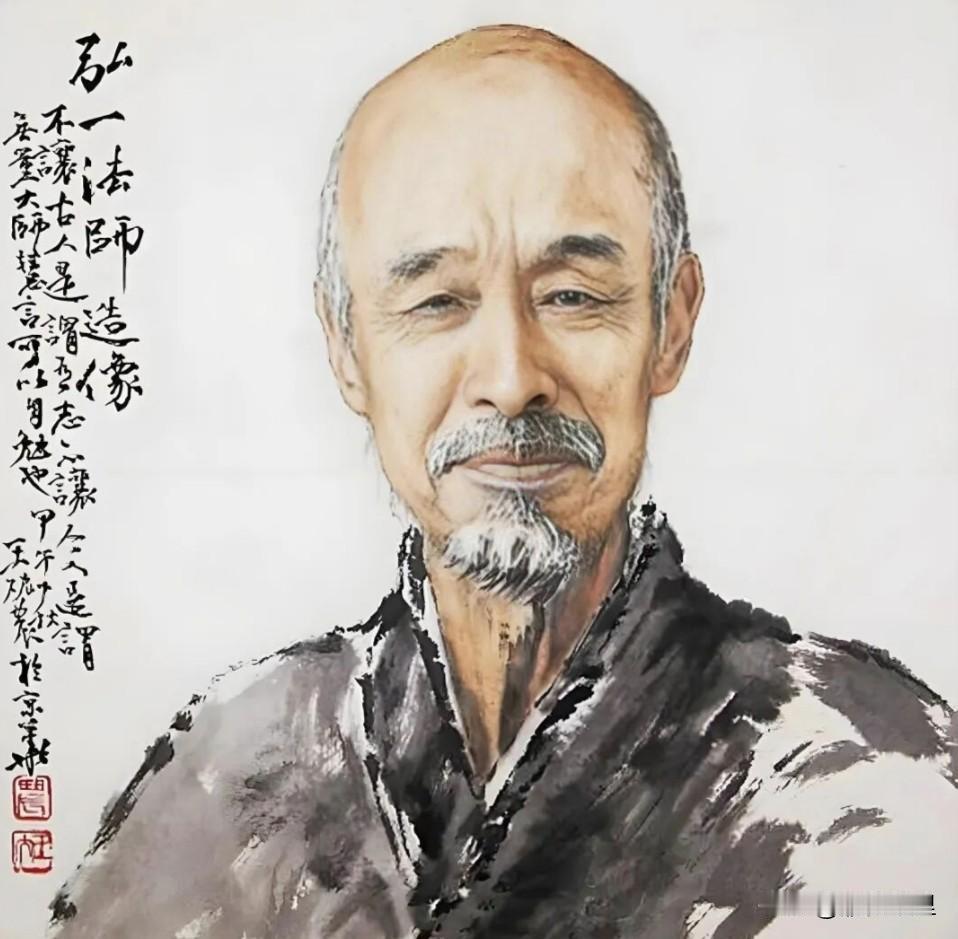 弘一法師造像
不讓古人是謂有志不讓今人是謂
無量大師慧言可以自勉也甲午 王 農於京華